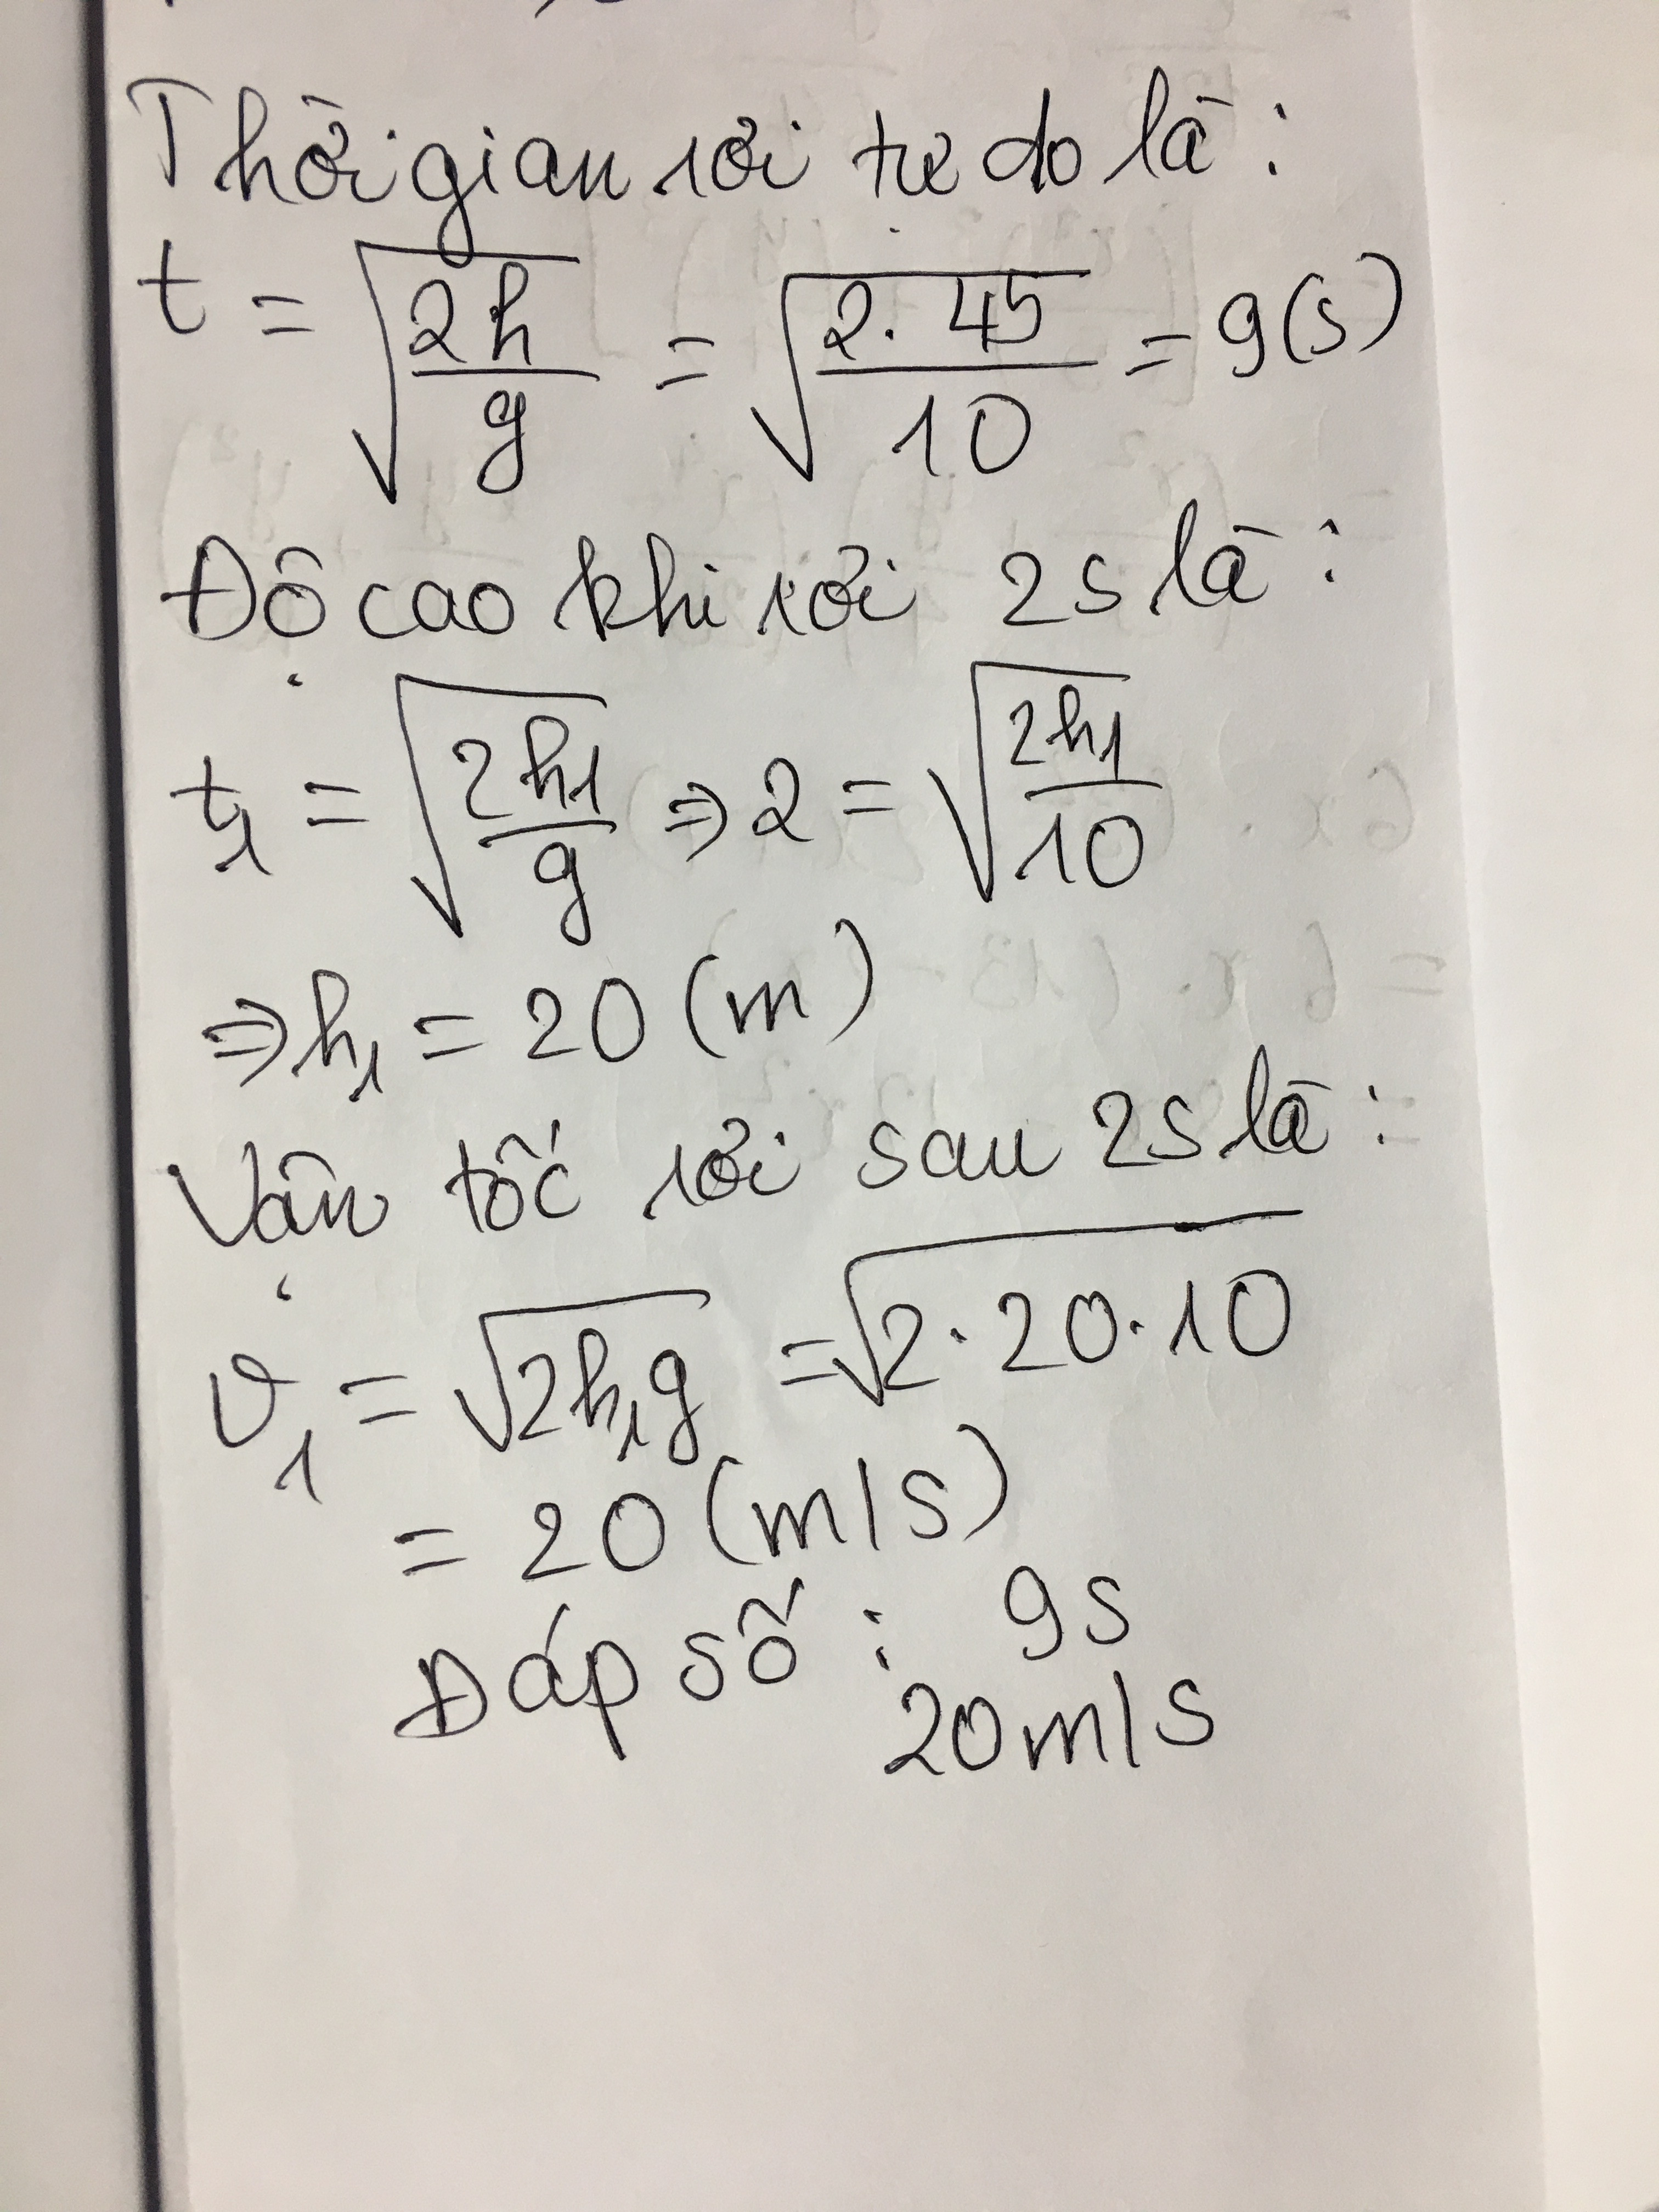 Thời gian rơi tự do là :
t = √(2h/g) = √(2.45/10) = 9(s)
Độ cao khi rơi 2s là :
t₁ = √(2h₁/g) ⇒ 2 = √(2h₁/10)
⇒ h₁ = 20 (m)
Vận tốc rơi sau 2s là :
v₁ = √(2h₁g) = √(2.20.10)
= 20 (m/s)
Đáp số : 9s
20m/s